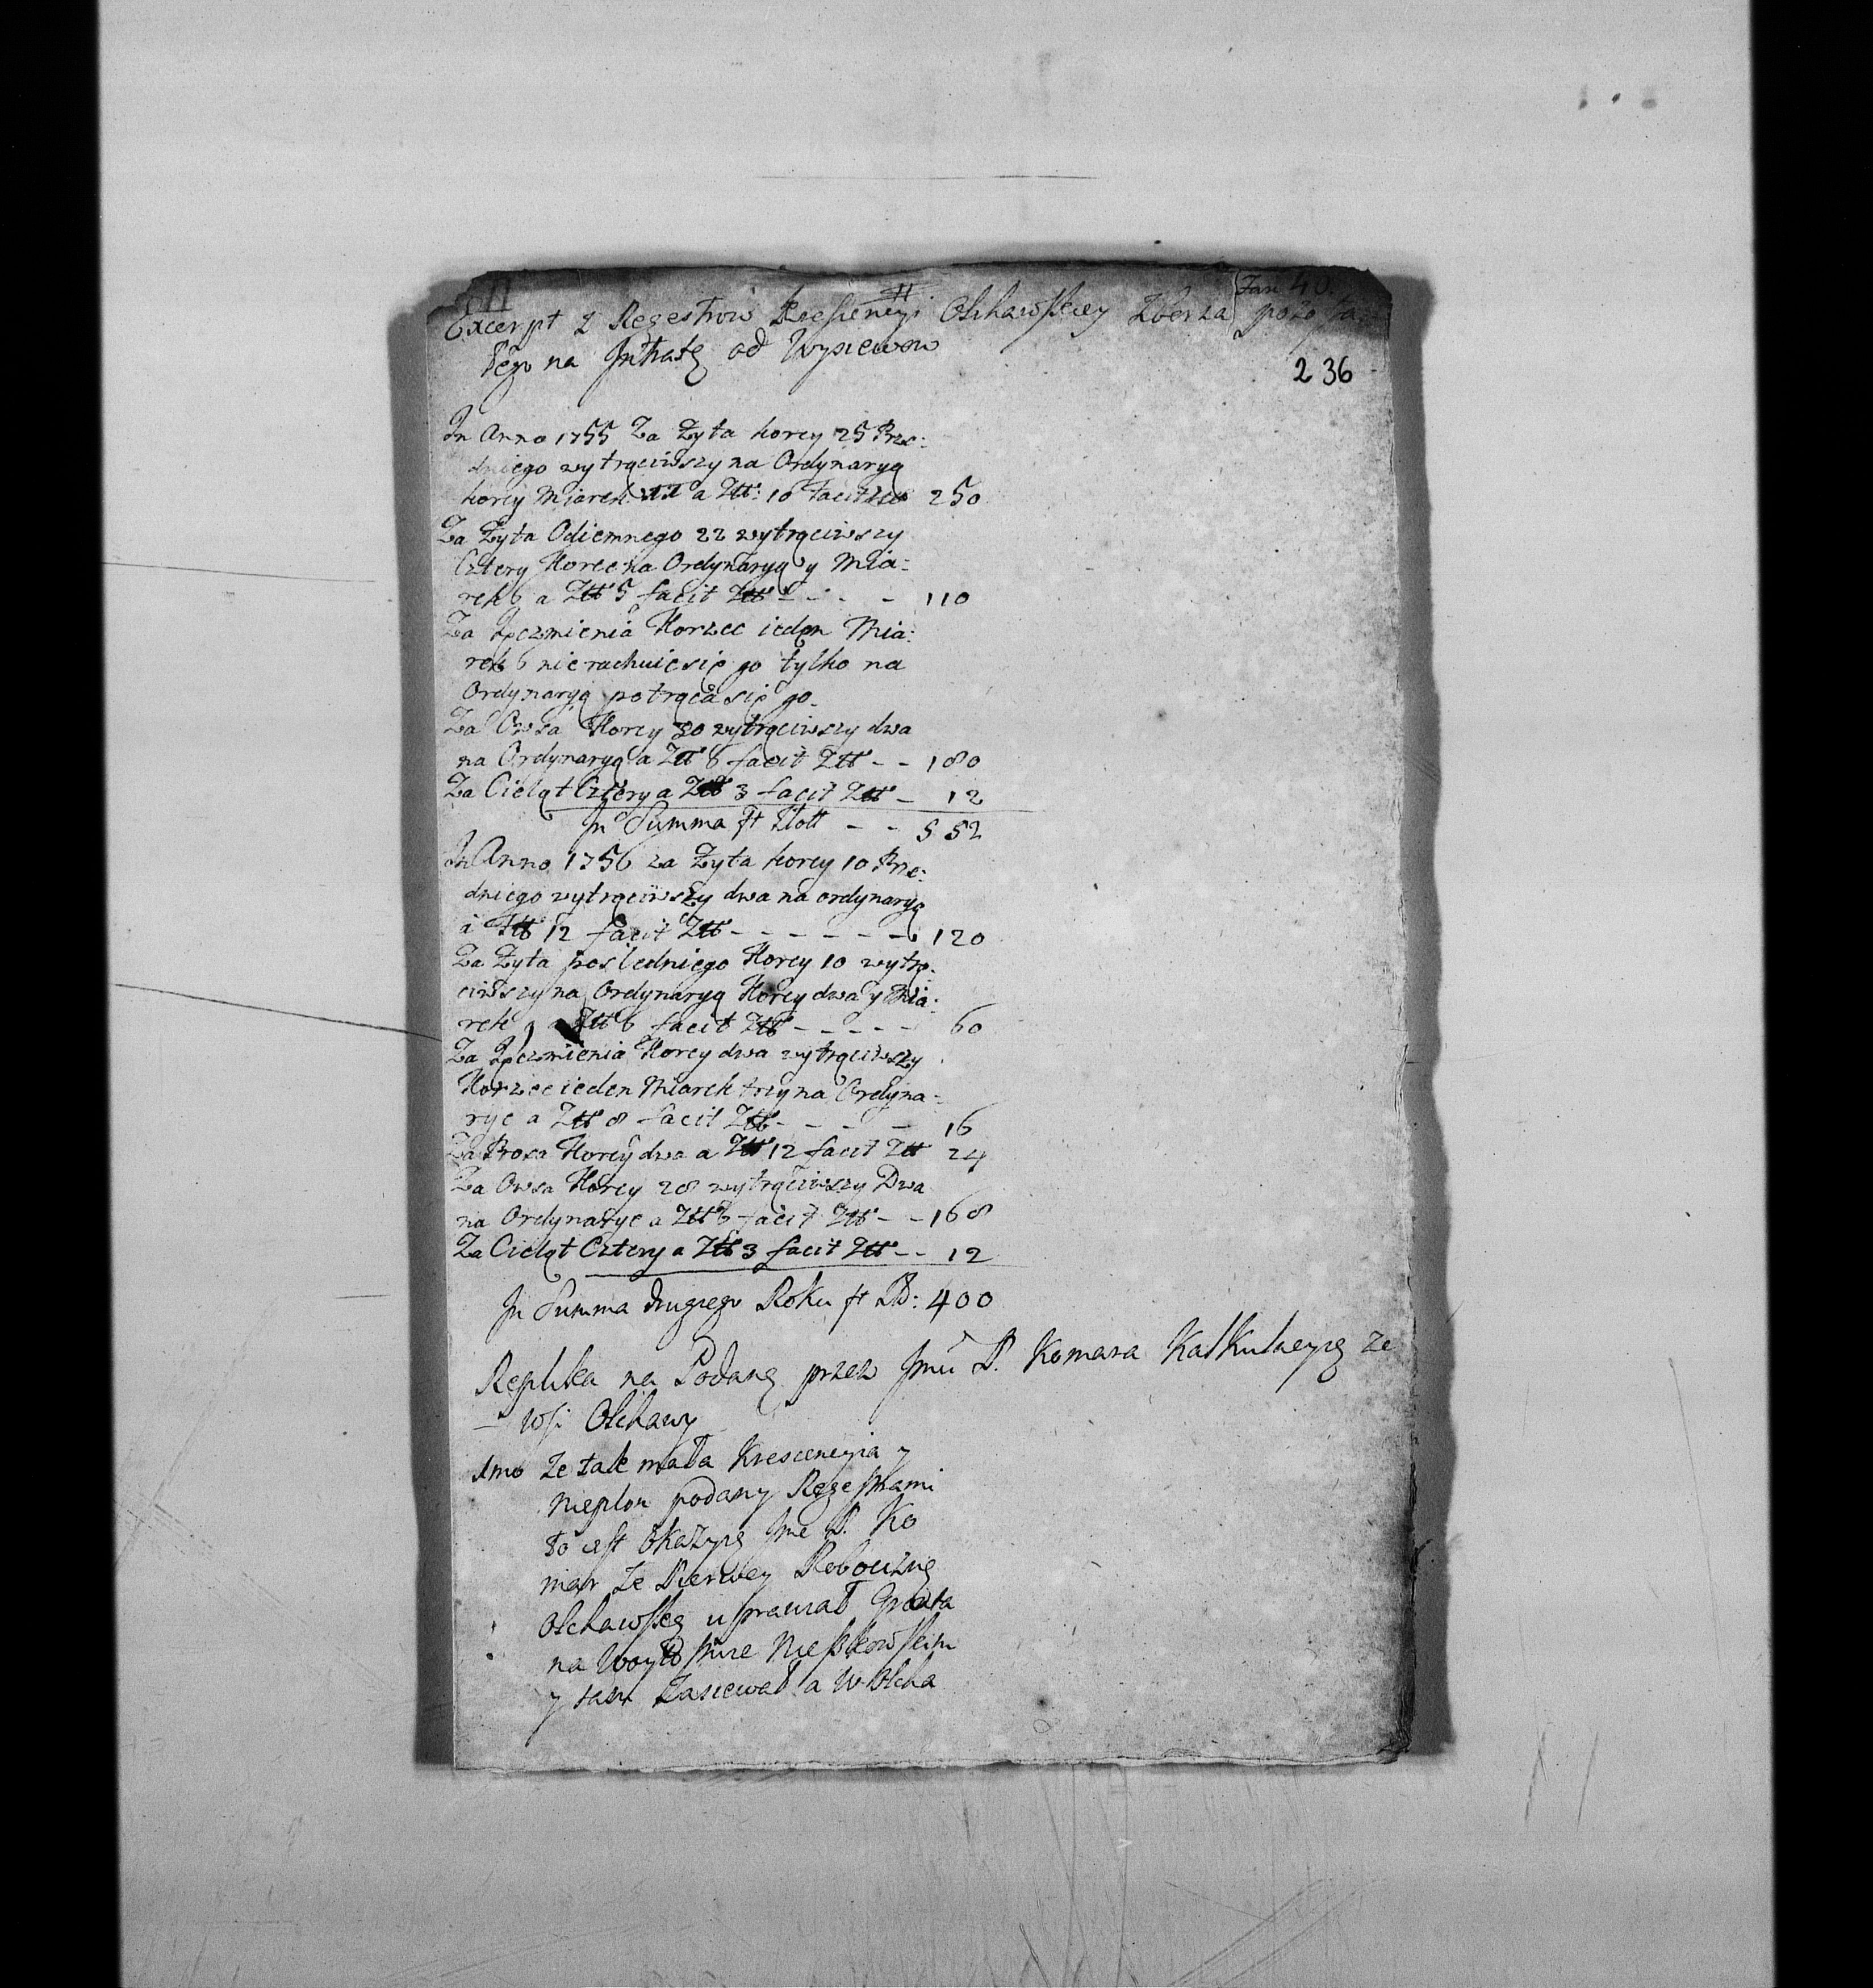 Fan 40.
Excerpt z Regestrow Krescencyi Olchawskiey Zboza pozosta
łego na Intratę od Wysiewow
236
In Anno 1755 Za Zyta korcy 25 Prze:
dniego wytrąciwszy na Ordynaryą
korcy Miarek a Złł: 10 facit Złł 250
Za Zyta Odiemnego 22 wytrąciwszy
Cztery Korce na Ordynaryą y Mia:
rek 6 a Złł 5 facit Złł - - - - 110
Za Jęczmienia Korzec ieden Mia:
rek 6 nie rachuie się go tylko na
Ordynaryą potrąca się go.
Za Owsa Korcy 30 wytrąciwszy dwa
na Ordynaryą a Złł 6 facit Złł - - 180
Za Cieląt Cztery a Złł 3 facit Złł - 12
In Summa ft Złott - - 552
In Anno 1756 za Zyta korcy 10 Prze:
dniego wytrąciwszy dwa na ordynaryą
a Złł 12 facit Złł - - - - - - 120
Za Zyta posledniego Korcy 10 wytrą:
ciwszy na Ordynaryą Korcy dwa y Mia:
rek a Złł 6 facit Złł - - - - - 60
Za Jęczmienia Korcy dwa wytrąciwszy
Korzec ieden Miarek trzy na Ordyna-
rye a Złł 8 facit Złł - - - - 16
Za Prosa Korcy dwa a Złł 12 facit Złł 24
Za Owsa Korcy 28 wytrąciwszy Dwa
na Ordynarye a Złł 6 facit Złł - - 168
Za Cieląt Cztery a Złł 3 facit Złł - - 12
In Summa drugiego Roku ft Złł: 400
Replika na Podaną przez Jmci P. Komara Kalkulacyą ze
wsi Olchawy
1mo Ze tak mała Krescencyia y
Nieplon podany Regestrami
to iest Okazyą Jme P. Ko
mar Ze Pierwey Robocizną
Olchawską usprawiał Grunta
na Woytostwie Nieszkowskim
y tam Zasiewał a w Olcha